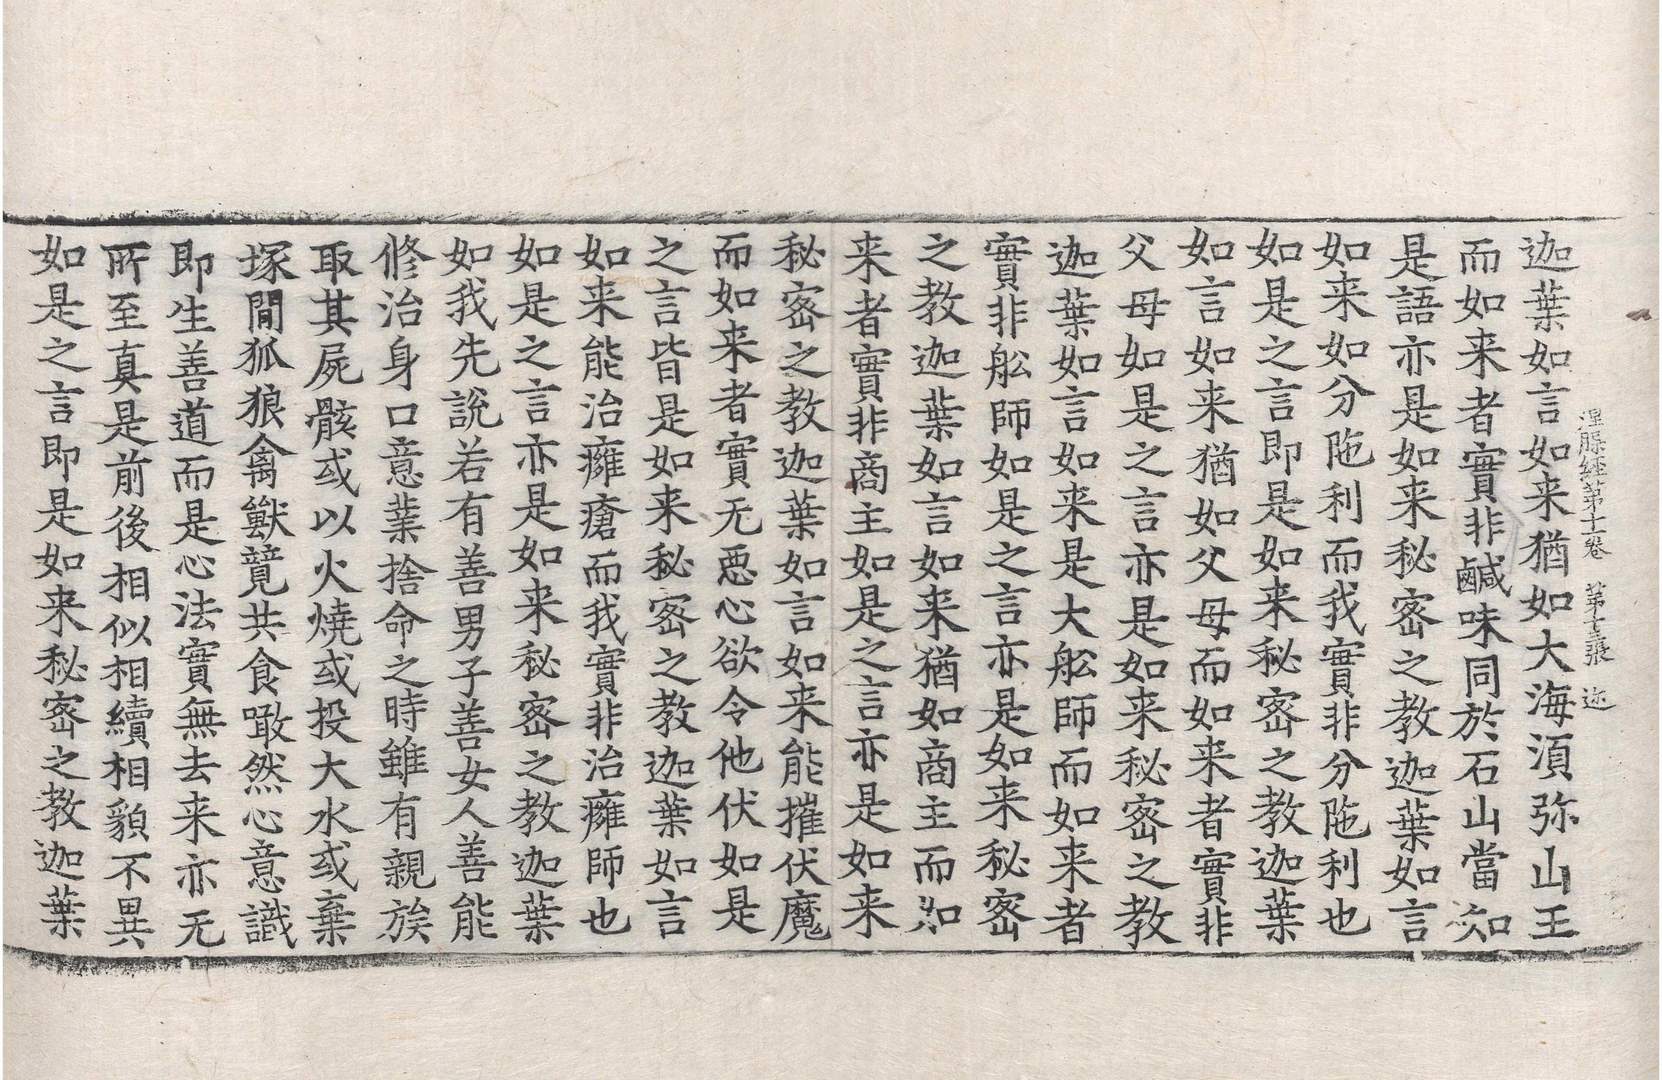 涅槃經第十二卷 第十三張 迩
迦葉如言如来猶如大海湏弥山王
而如来者實非鹹味同於石山當知
是語亦是如来秘密之教迦葉如言
如来如分陁利而我實非分陁利也
如是之言即是如来秘密之教迦葉
如言如来猶如父母而如来者實非
父母如是之言亦是如来秘密之教
迦葉如言如来是大舩師而如来者
實非舩師如是之言亦是如来秘密
之教迦葉如言如来猶如商主而如
来者實非商主如是之言亦是如来
秘密之教迦葉如言如来能摧伏魔
而如来者實无惡心欲令他伏如是
之言皆是如来秘密之教迦葉如言
如来能治癰瘡而我實非治癰師也
如是之言亦是如来秘密之教迦葉
如我先說若有善男子善女人善能
修治身口意業捨命之時雖有親族
取其屍骸或以火燒或投大水或棄
塚間狐狼禽獸競共食噉然心意識
即生善道而是心法實無去来亦无
所至真是前後相似相續相貌不異
如是之言即是如来秘密之教迦葉